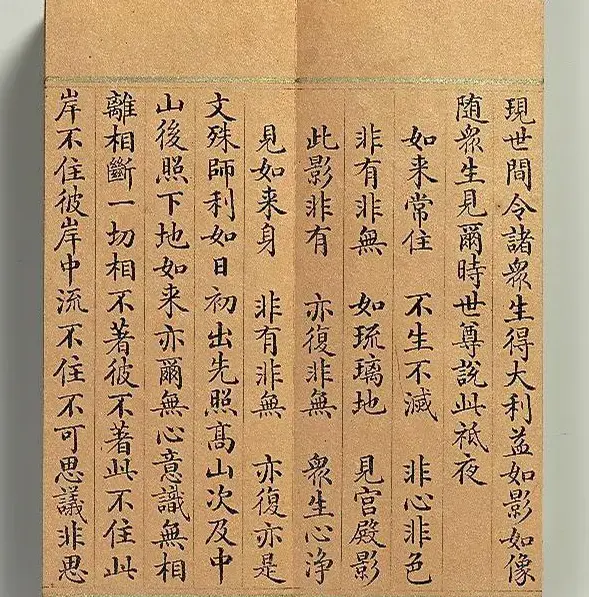 現世間令諸衆生得大利益如影如像
随衆生見爾時世尊說此祇夜
如来常住 不生不滅 非心非色
非有非無 如琉璃地 見宮殿影
此影非有 亦復非無 衆生心浄
見如来身 非有非無 亦復亦是
文殊師利如日初出先照髙山次及中
山後照下地如来亦爾無心意識無相
離相斷一切相不著彼不著此不住此
岸不住彼岸中流不住不可思議非思